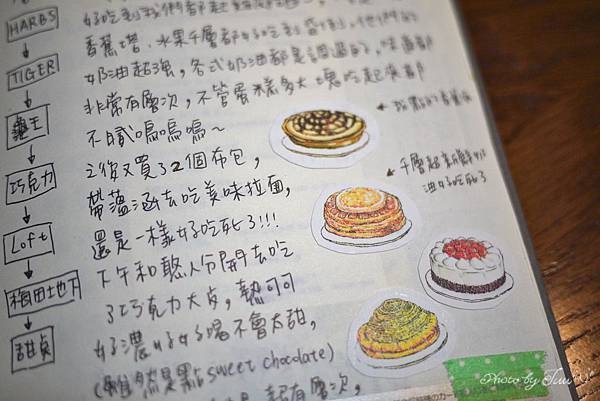 HARBS
TIGER
龍王
巧克力
Loft
梅田地下
甜貞
好吃到我們都起
香蕉塔、水果千層都好吃到昏倒,他們的
奶油超強,各式奶油都是調過的,味道都
非常有層次,不管蛋糕多大塊吃起來都
不膩嗚嗚嗚~
之後又買了2個布包,
帶蘊涵去吃美味拉麵,
還是一樣好吃死了!!!
下午和憨人分開去吃
了巧克力大店,熱可可
好濃好好喝不會太甜,
(雖然是點 sweet chocolate)
超有層次,
的香蕉塔
千層超新鮮
油好好吃死了
Photo by